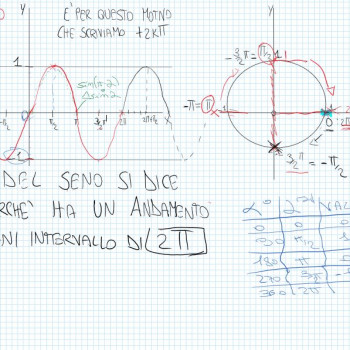 Y
È PER QUESTO MOTIVO
CHE SCRIVIAMO +2kπ
1
sin(π-2)
sin 2
0
-π/2
π/2
π
3/2π
2π
-1
Y
-3/2π = π/2
1
-π = π
-1
1
0
2π
3/2π = -π/2
DEL SENO SI DICE
HA UN ANDAMENTO
INTERVALLO DI 2π
α° α rad VAL
0 0
90 π/2 1
180 π
270 3/2π -
360 2π